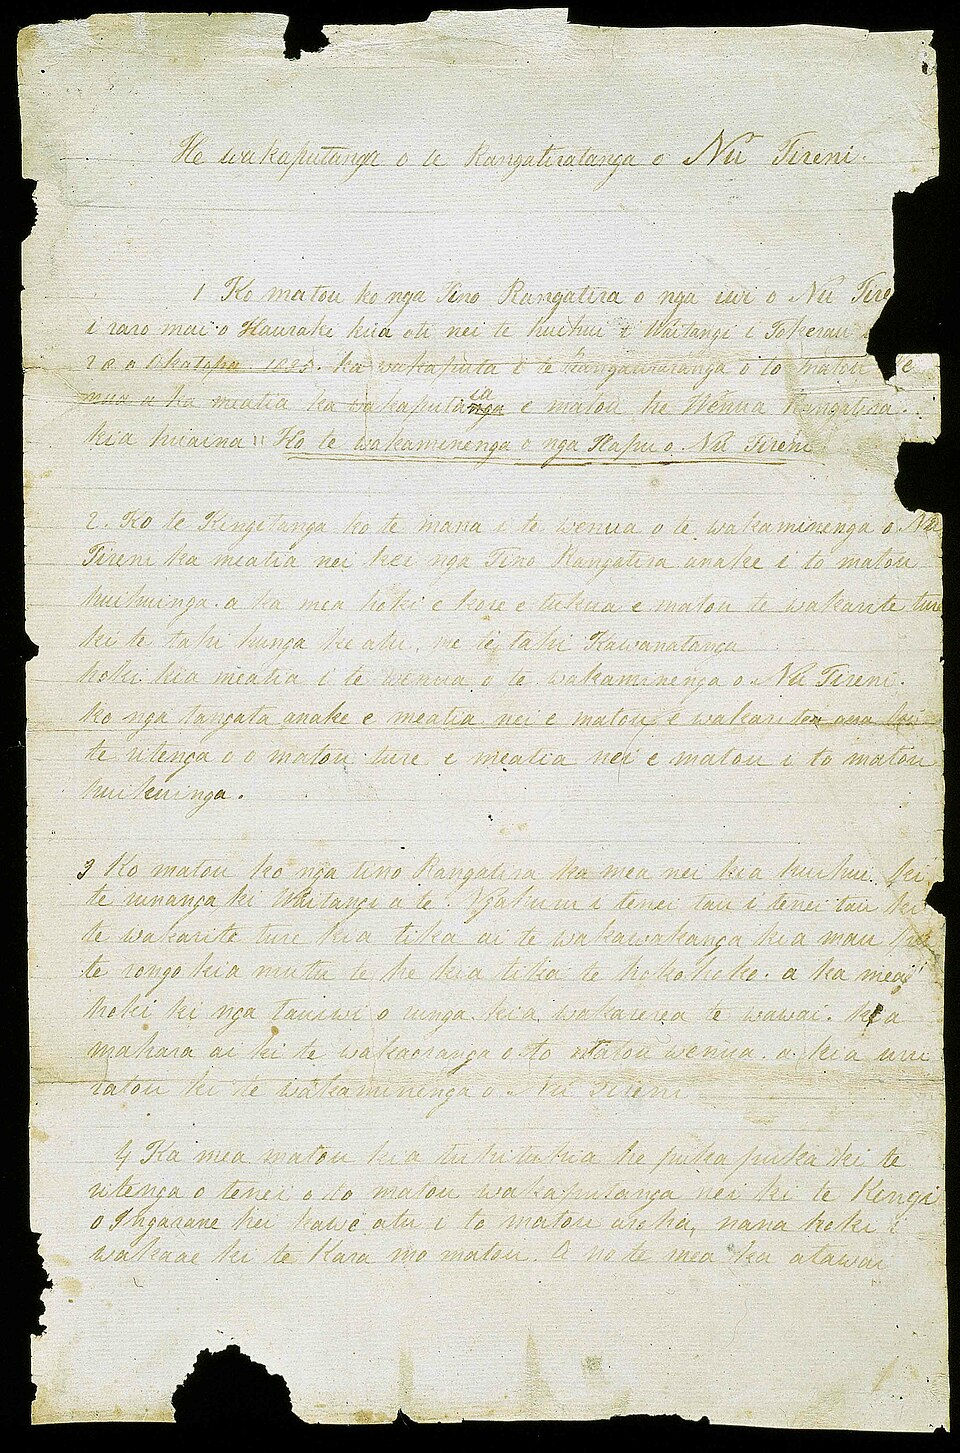 He wakaputanga o te Rangatiratanga o Nu Tireni.
1 Ko matou ko nga Tino Rangatira o nga iwi o Nu Tire
i raro mai o Hauraki kua oti nei te huihui i Waitangi i Tokerau
28 o Oketopa 1835. ka wakaputa i te Rangatiratanga o to matou we
nua a ka meatia ka wakaputaia e matou he Wenua Rangatira.
kia huaina "Ko te wakaminenga o nga Hapu o Nu Tireni
2. Ko te Kingitanga ko te mana i te wenua o te wakaminenga o Nu
Tireni ka meatia nei kei nga Tino Rangatira anake i to matou
huihuinga. a ka mea hoki e kore e tukua e matou te wakarite ture
ki te tahi hunga ke atu, me te tahi Kawanatanga
hoki kia meatia i te wenua o te wakaminenga o Nu Tireni.
ko nga tangata anake e meatia nei e matou e wakarite ana ki
te ritenga o o matou ture e meatia nei e matou i to matou
huihuinga.
3 Ko matou ko nga tino Rangatira ka mea nei kia huihui ki
te runanga ki Waitangi a te Ngahuru i tenei tau i tenei tau ki
te wakarite ture kia tika ai te wakawakanga kia mau
te rongo kia mutu te he kia tika te hokohoko. a ka mea
hoki ki nga Tauiwi o runga kia wakarerea te wawai. kia
mahara ai ki te wakaoranga o to matou wenua. a kia uru
ratou ki te wakaminenga o Nu Tireni
4 Ka mea matou kia tuhituhia he pukapuka ki te
ritenga o tenei o to matou wakaputanga nei ki te Kingi
o Ingarane hei kawe atu i to matou aroha, nana hoki i
wakaae ki te Kara mo matou. A no te mea ka atawai